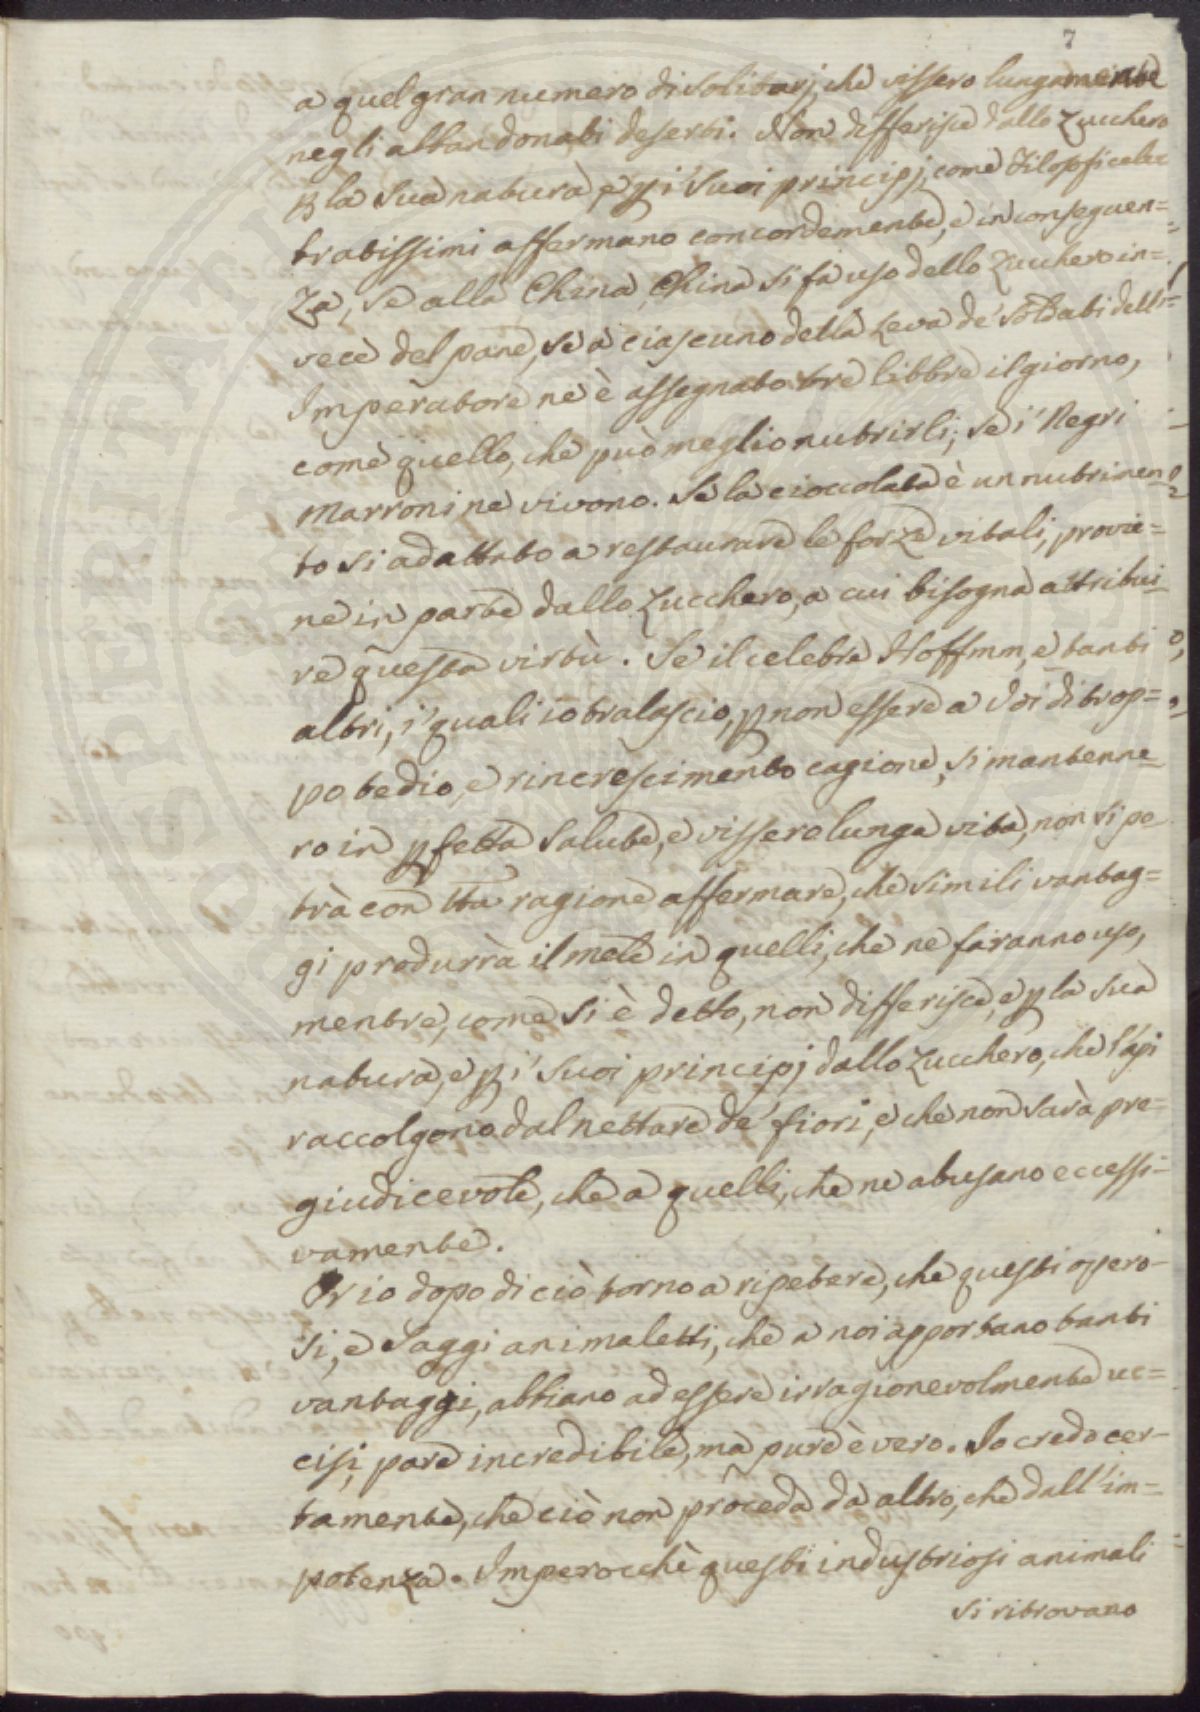 7
a quel gran numero di solitarj, che vissero lungamente
negli abbandonati deserti. Non differisce dallo Zucchero
p la sua natura, e p i' suoi principj, come Filosofi celet
tratissimi affermano concordemente, e in conseguen=
za, se alla China, China si fa uso dello Zucchero in=
vece del pane, se a ciascuno della Leva de' Soldati dell'=
Imperatore ne è assegnato tre libbre il giorno,
come quello, che può meglio nutrirli; se i' Negri
Marroni ne vivono. Se la cioccolata è un nutrimen=
to si adattato a restaurare le forze vitali, provie=
ne in parte dallo Zucchero, a cui bisogna attribui=
re questa virtù. Se il celebre Hoffmm, e tanti
altri, i' quali io tralascio, p non essere a Voi di trop=
po tedio, e rincrescimento cagione, si mantenne=
ro in pfetta salute, e vissere lunga vita, non si po
trà con tta ragione affermare, che simili vantag=
gi produrrà il mele in quelli, che ne faranno uso,
mentre, come si è detto, non differisce, e p la sua
natura, e p i' suoi principj dallo Zucchero, che l'api
raccolgono dal nettare de' fiori, e che non sarà pre=
giudicevole, che a quelli, che ne abusano eccessi=
vamente.
Or io dopo di ciò torno a ripetere, che questi opero-
si, e saggi animaletti, che a noi apportano tanti
vantaggi, abbiano ad essere irragionevolmente uc=
cisi, pare incredibile, ma pure è vero. Io credo cer-
tamente, che ciò non proceda da altro, che dall'im=
potenza. Imperocchè questi industriosi animali
si ritrovano